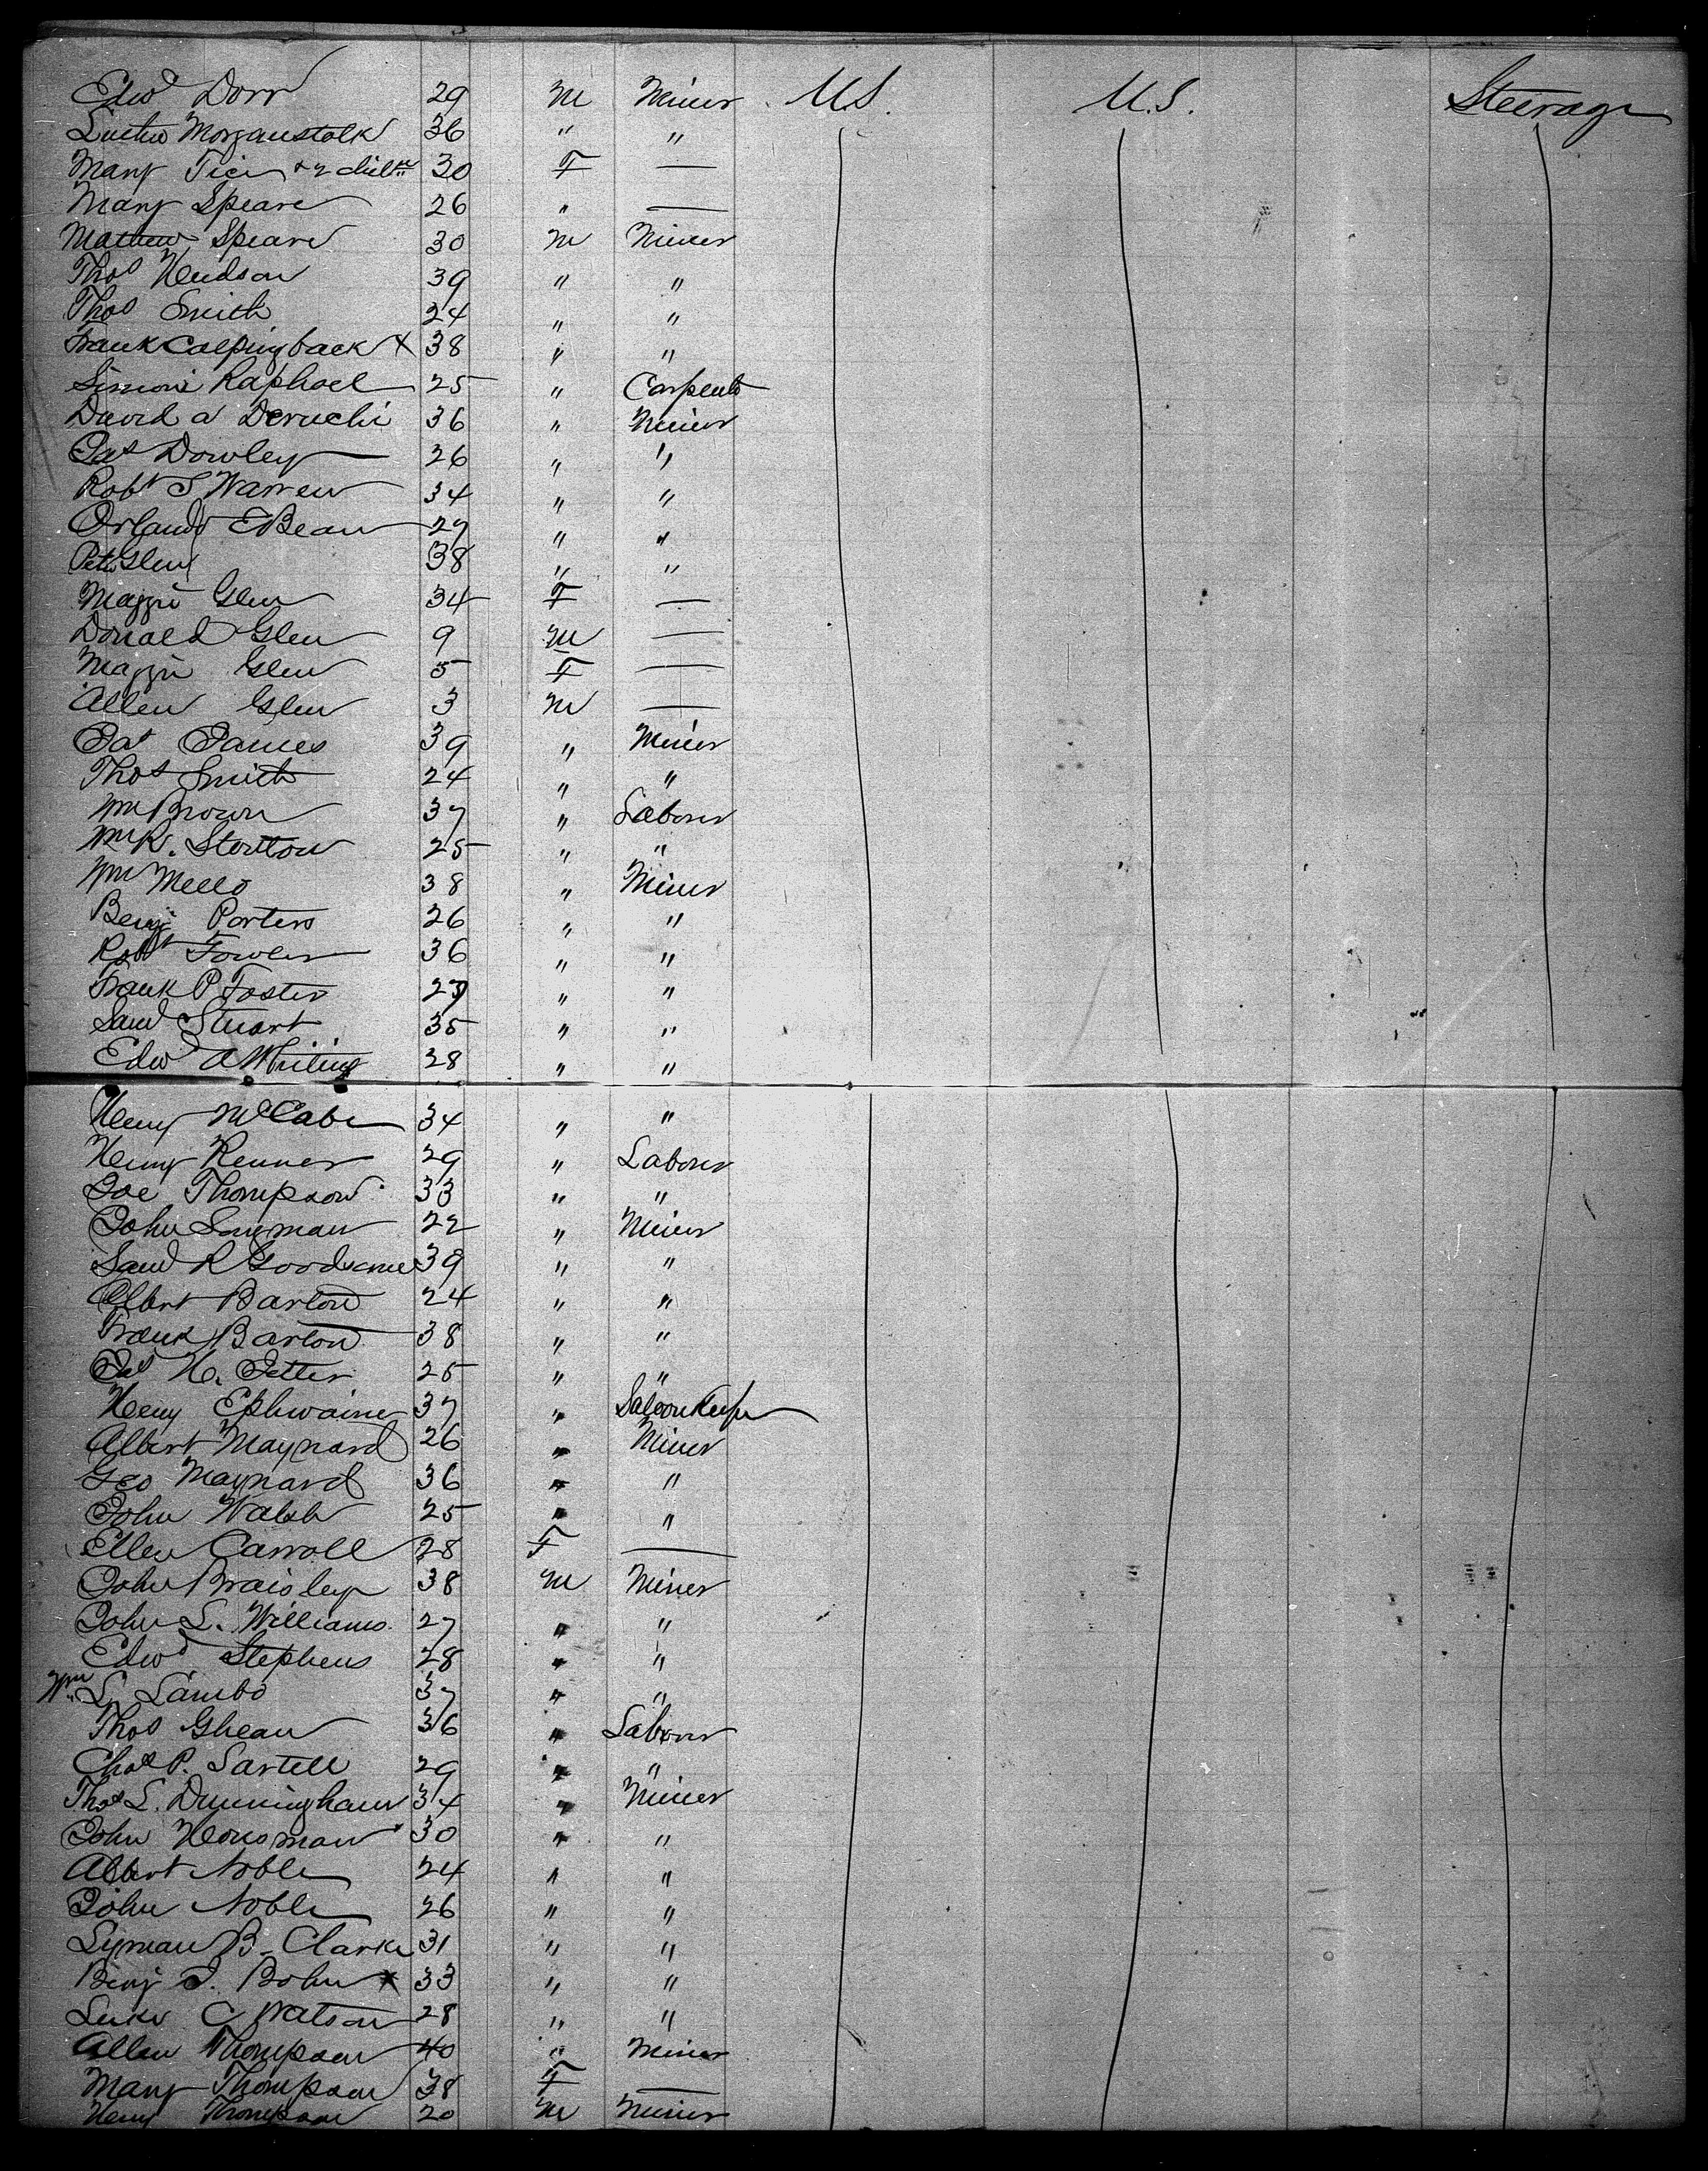 Edwd Dorr 29 M Miner U.S. U.S. Steerage
Morganstalk 36 " "
Mary Tice + 2 child 30 F —
Mary Speare 26 " —
Mathew Speare 30 M Miner
Thos Hudson 39 " "
Thos Smith 24 " "
Frank Calpingback X 38 " "
Simon Raphael 25 " Carpenter
David a Deruchi 36 " Miner
Jas Dowley 26 " "
Robt S Warren 34 " "
Orlando E Bean 27 " "
Peter Glen 38 " "
Maggie Glen 34 F —
Donald Glen 9 M —
Maggie Glen 5 F —
Allen Glen 3 M —
Jas James 39 " Miner
Thos Smith 24 " "
Wm Brown 37 " Laborer
Wm R. Stertton 25 " "
Wm Mello 38 " Miner
Benj Porters 26 " "
Robt Fowler 36 " "
Frank P Foster 27 " "
Saml Stuart 35 " "
Edwd A Whiting 28 " "
Henry McCabe 34 " "
Henry Renner 29 " Laborer
Joe Thompson 33 " "
John Longman 22 " Miner
Saml R Goodscme 39 " "
Elbert Barton 24 " "
Frank Barton 38 " "
Jas H. Jetter 25 " "
Henry Ephwaine 37 " Saloon Keeper
Albert Maynard 26 " Miner
Geo Maynard 36 " "
John Walsh 25 " "
Ellen Carroll 28 F —
John Braisley 38 M Miner
John L. Williams 27 " "
Edwd Stephens 28 " "
Wm L. Lambo 37 " "
Thos Ghean 36 " Laborer
Chas P. Sartell 29 " "
Thos L. Dunningham 34 " Miner
John Housman 30 " "
Albert Noble 24 " "
John Noble 26 " "
Lyman B. Clarke 31 " "
Benj J. Bohn X 33 " "
Luke C Watson 28 " "
Allen Thompson 40 " Miner
Mary Thompson 38 F —
Henry Thompson 20 M Miner